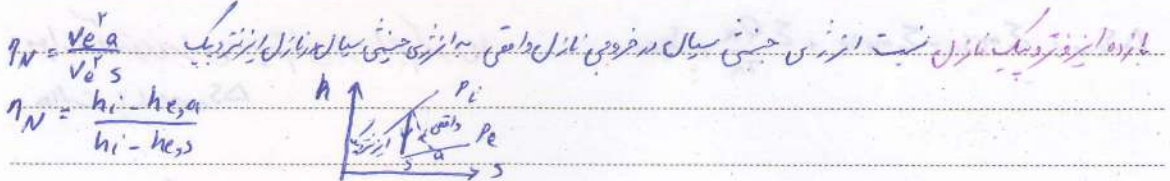 بازده ایزنتروپیک نازل: نسبت انرژی جنبشی سیال در خروجی نازل واقعی به انرژی جنبشی سیال در نازل ایزنتروپیک η_N = Ve²a / Ve²s
η_N = (hi - he,a) / (hi - he,s)
h Pi
واقعی Pe
s a
s